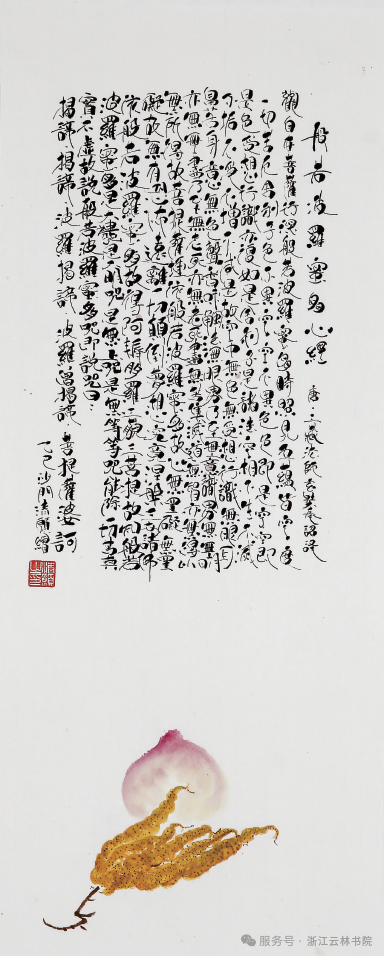 般若波羅蜜多心經
唐三藏法師玄奘奉詔譯
觀自在菩薩行深般若波羅蜜多時照見五蘊皆空度
一切苦厄舍利子色不異空空不異色色即是空空即
是色受想行識亦復如是舍利子是諸法空相不生不滅
不垢不淨不增不減是故空中無色無受想行識無眼耳
鼻舌身意無色聲香味觸法無眼界乃至無意識界無無明
亦無無明盡乃至無老死亦無老死盡無苦集滅道無智亦無得以
無所得故菩提薩埵依般若波羅蜜多故心無罣礙無罣
礙故無有恐怖遠離一切顛倒夢想究竟涅槃三世諸佛
依般若波羅蜜多故得阿耨多羅三藐三菩提故知般若
波羅蜜多是大神咒是大明咒是無上咒是無等等咒能除一切苦真
實不虛故說般若波羅蜜多咒即說咒曰
揭諦揭諦波羅揭諦波羅僧揭諦菩提薩婆訶
乙巳沙門
服务号·浙江云林书院